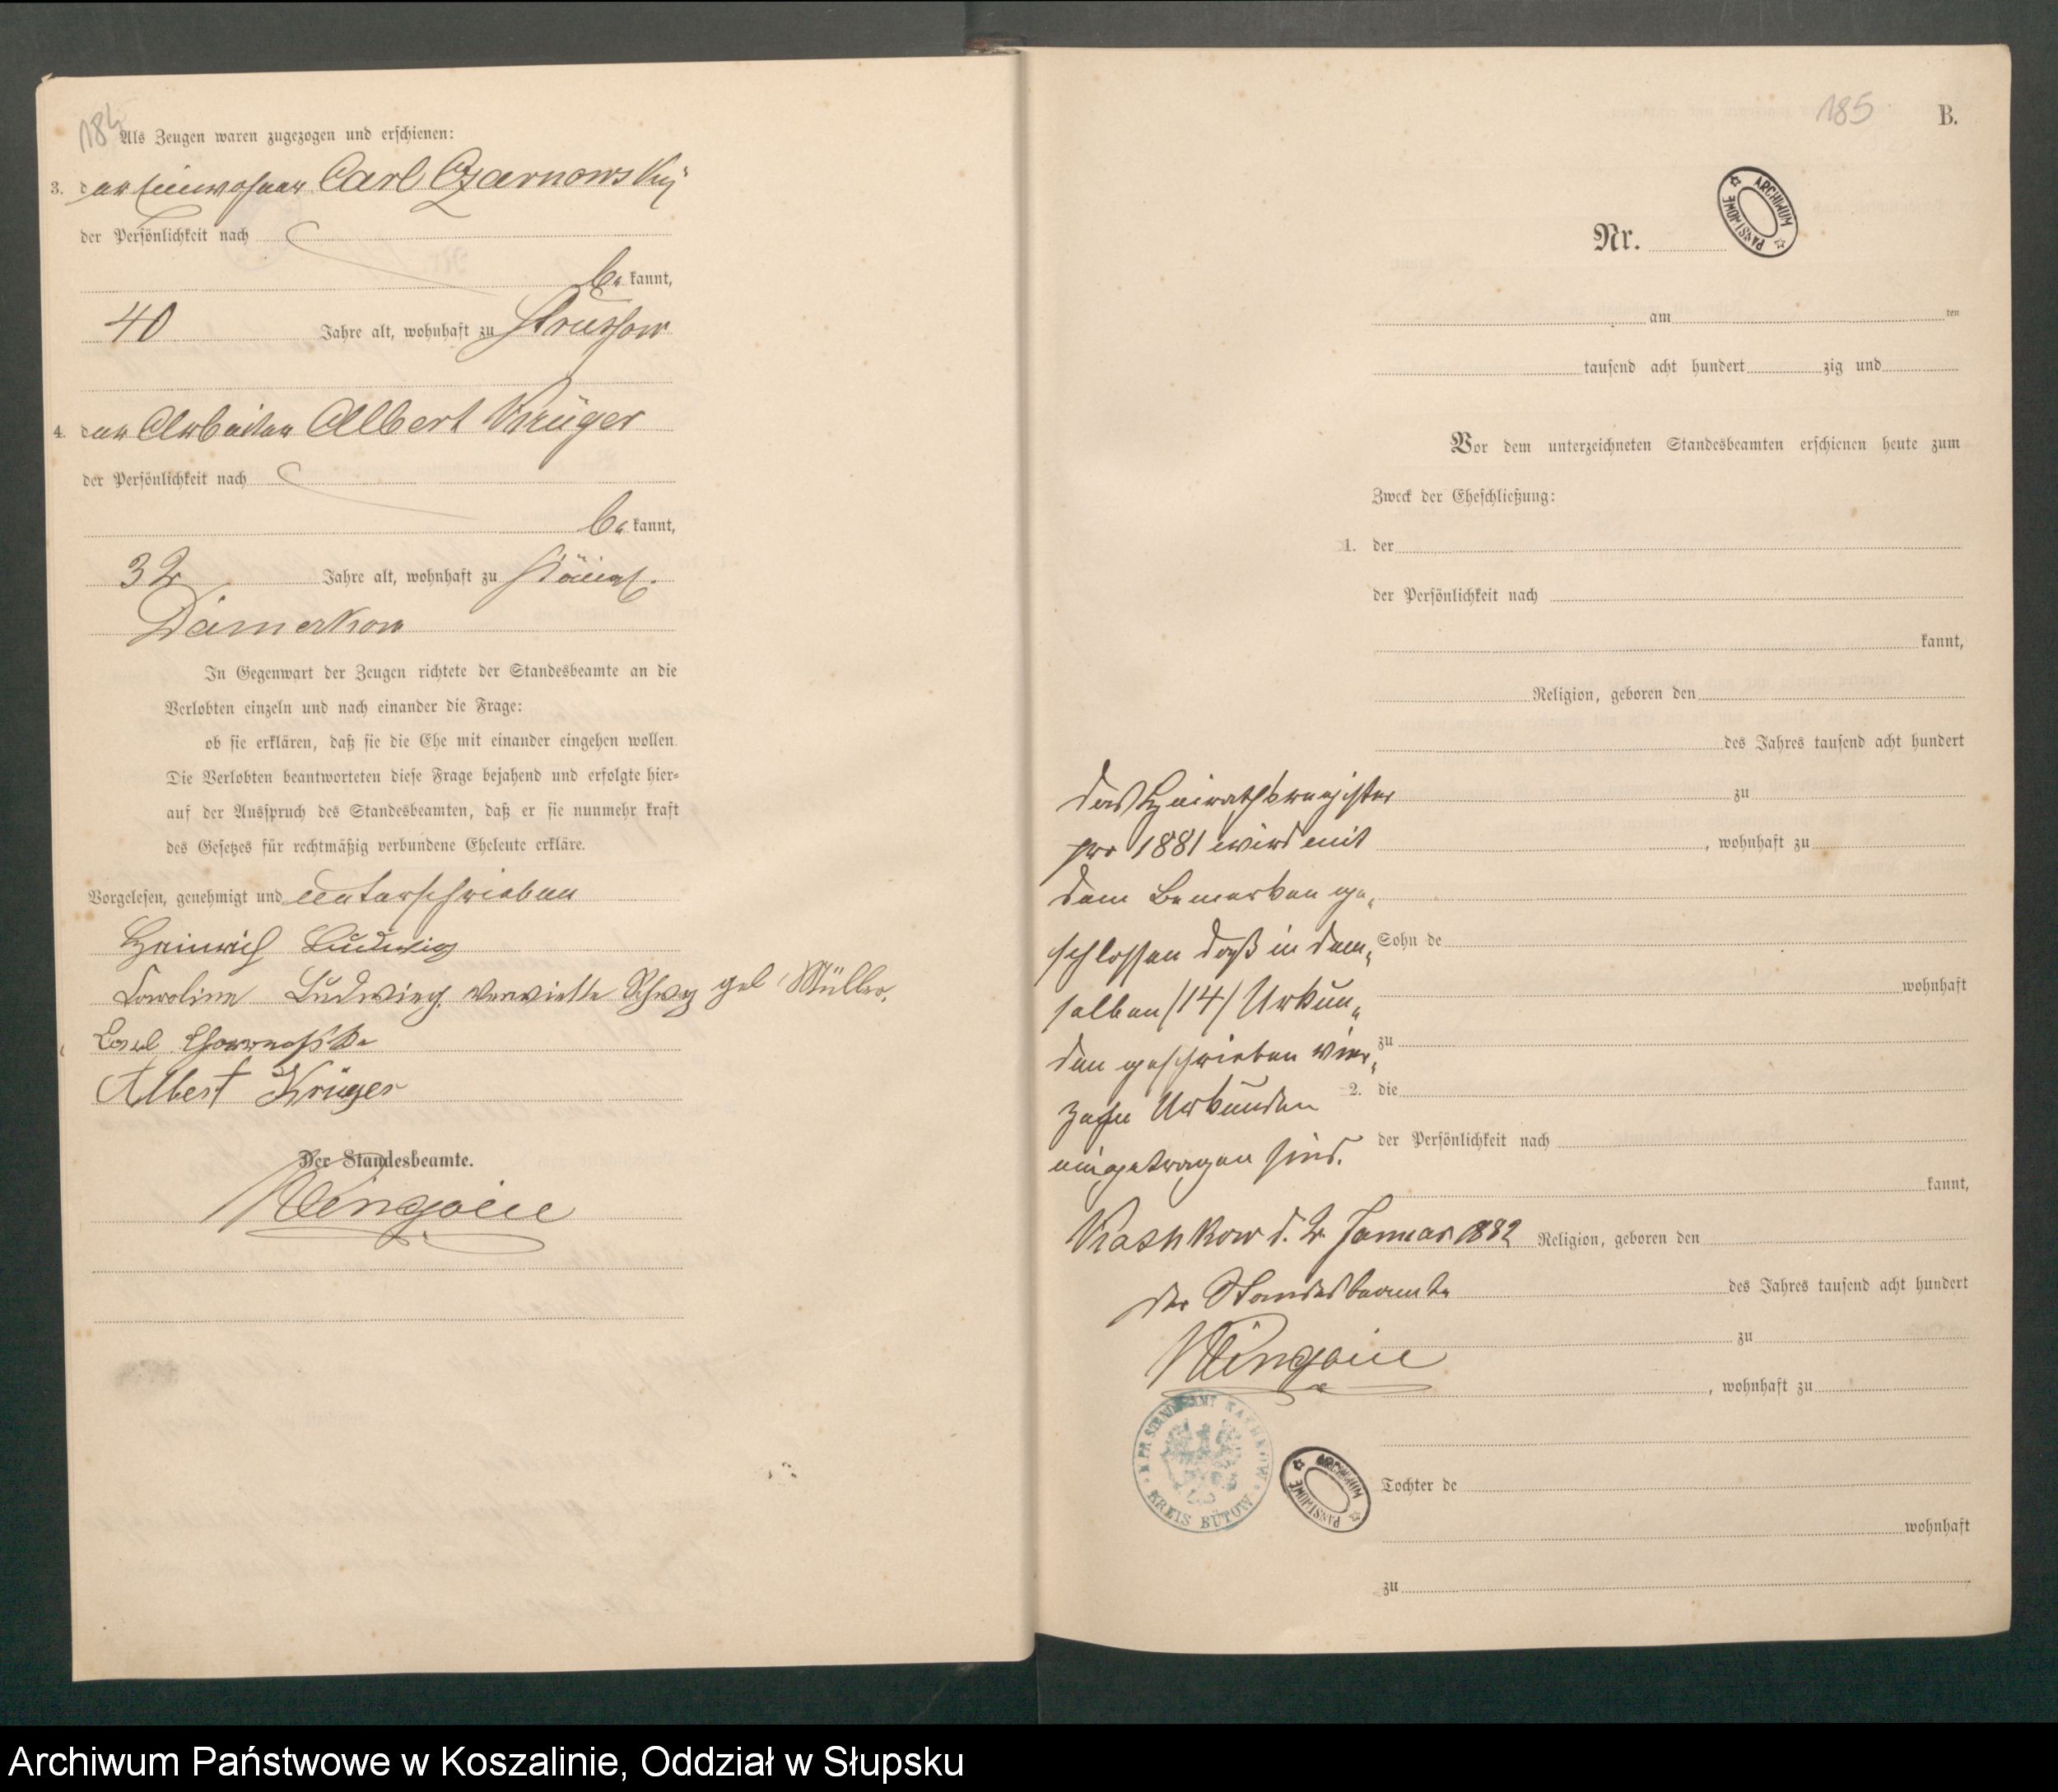 184
Als Zeugen waren zugezogen und erschienen:
3. der Einwohner Carl Czarnowsky
der Persönlichkeit nach
be kannt,
40 Jahre alt, wohnhaft zu Strussow
4. der Arbeiter Albert Krüger
der Persönlichkeit nach
be kannt,
32 Jahre alt, wohnhaft zu Königl.
Damerkow
In Gegenwart der Zeugen richtete der Standesbeamte an die
Verlobten einzeln und nach einander die Frage:
ob sie erklären, daß sie die Ehe mit einander eingehen wollen.
Die Verlobten beantworteten diese Frage bejahend und erfolgte hier-
auf der Ausspruch des Standesbeamten, daß er sie nunmehr kraft
des Gesetzes für rechtmäßig verbundene Eheleute erkläre.
Vorgelesen, genehmigt und unterschrieben
Heinrich Ludwig
Caroline Ludwig verwitte geb Müller.
Carl
Albert Krüger
Der Standesbeamte.
185
B.
ARCHIWUM PAŃSTWOWE
Nr.
am ten
tausend acht hundert zig und
Vor dem unterzeichneten Standesbeamten erschienen heute zum
Zweck der Eheschließung:
1. der
der Persönlichkeit nach
kannt,
Religion, geboren den
des Jahres tausend acht hundert
zu
, wohnhaft zu
Sohn de
wohnhaft
zu
2. die
der Persönlichkeit nach
kannt,
Religion, geboren den
des Jahres tausend acht hundert
zu
, wohnhaft zu
Tochter de
wohnhaft
zu
Das Heirathsregister
pro 1881 wird mit
dem Bemerken ge-
schlossen daß in dem-
selben /14/ Urkun-
den geschrieben vier-
zehn Urkunden
eingetragen sind.
Kathkow d. 2. Januar 1882
Der Standesbeamte
K. PR. STANDESAMT KATHKOW
KREIS BÜTOW
ARCHIWUM PAŃSTWOWE
Archiwum Państwowe w Koszalinie, Oddział w Słupsku